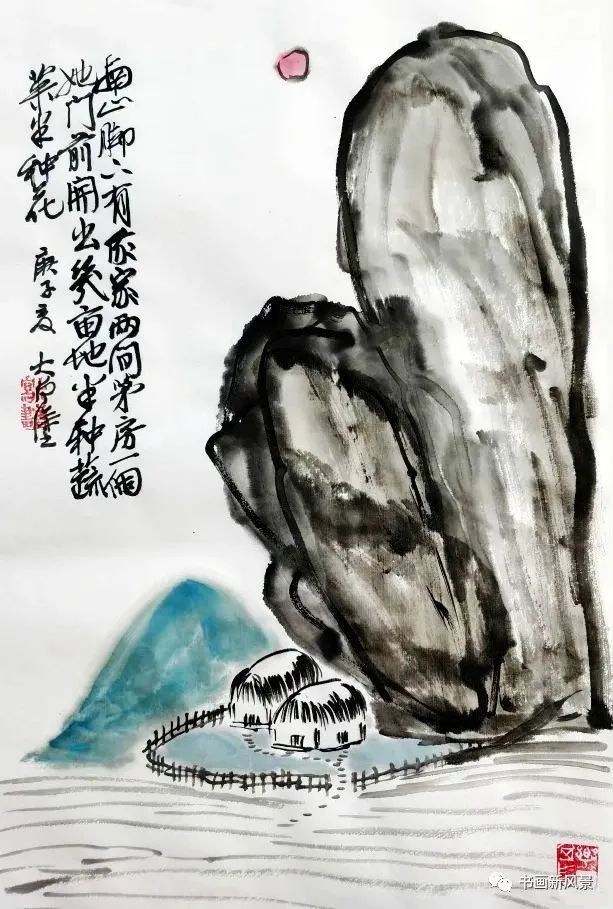 南山脚下有我家两间茅房一個
她门前開出幾亩地半种蔬
菜半种花 庚子夏 大
书画新风景